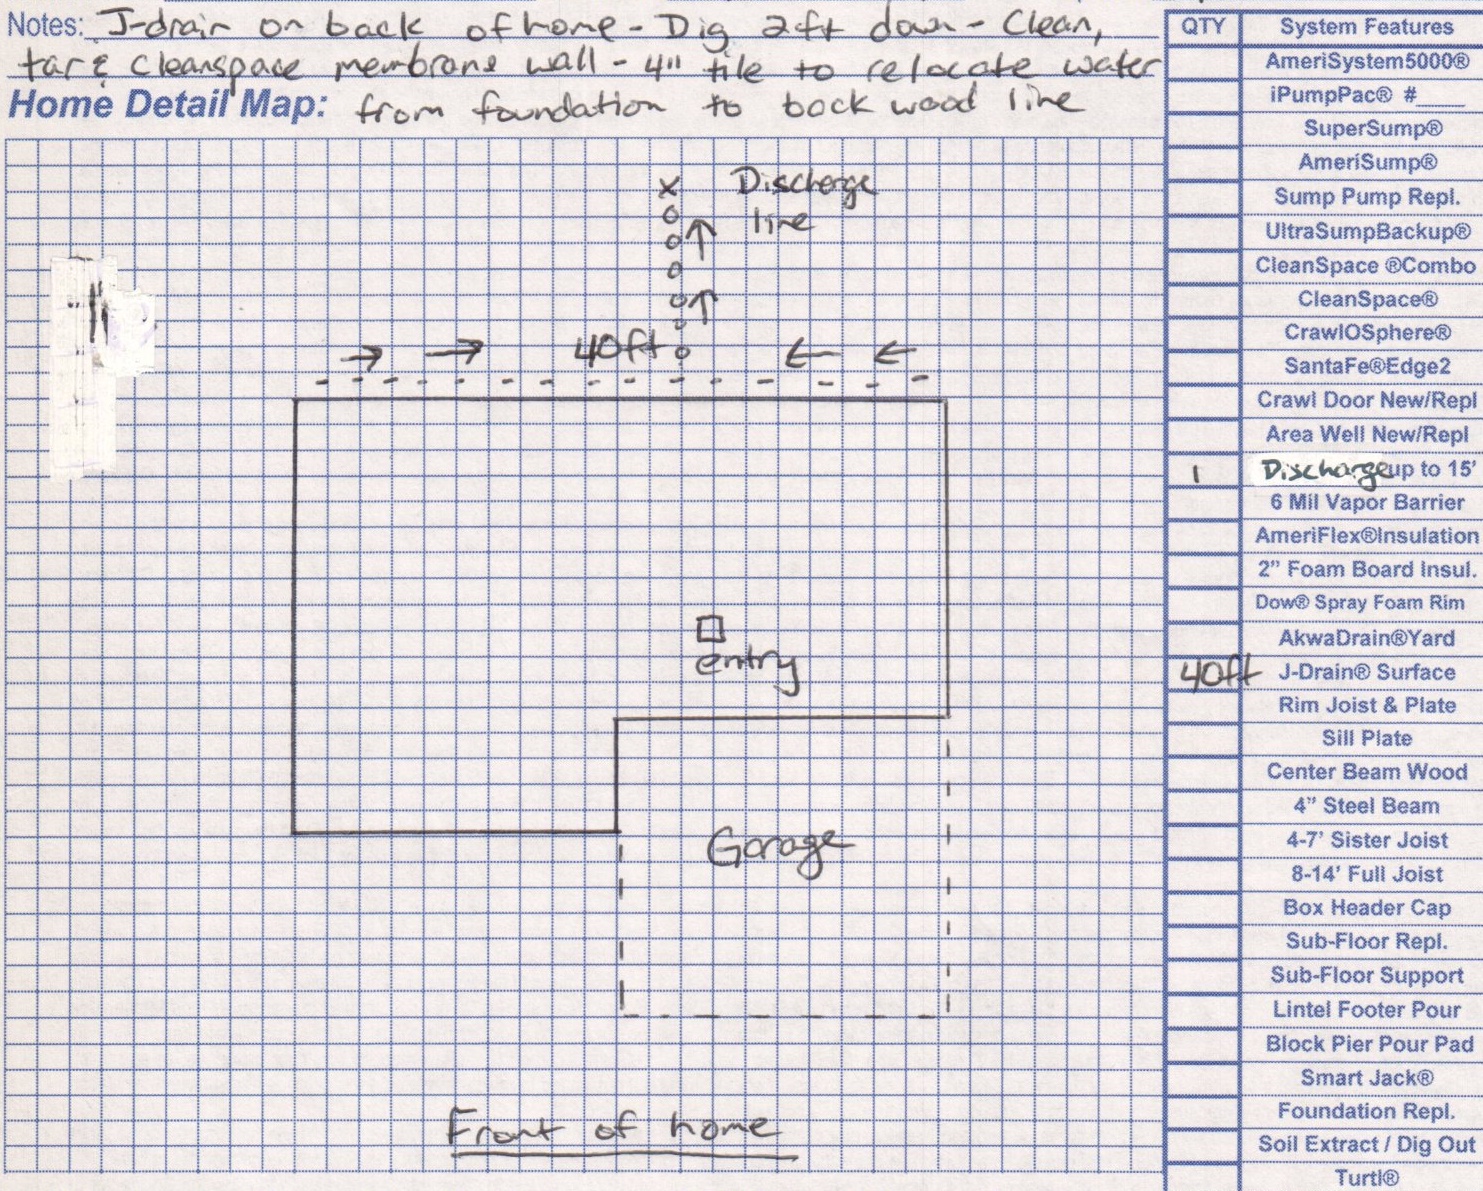 Notes: J-drain on back of home - Dig 2ft down - Clean,
tar & Cleanspace membrane wall - 4" tile to relocate water
Home Detail Map: from foundation to back wood line
x Discharge
line
40ft
entry
Garage
Front of home
QTY System Features
AmeriSystem5000®
iPumpPac® #____
SuperSump®
AmeriSump®
Sump Pump Repl.
UltraSumpBackup®
CleanSpace ®Combo
CleanSpace®
CrawlOSphere®
SantaFe®Edge2
Crawl Door New/Repl
Area Well New/Repl
1 Discharge up to 15'
6 Mil Vapor Barrier
AmeriFlex®Insulation
2” Foam Board Insul.
Dow® Spray Foam Rim
AkwaDrain®Yard
40ft J-Drain® Surface
Rim Joist & Plate
Sill Plate
Center Beam Wood
4” Steel Beam
4-7’ Sister Joist
8-14’ Full Joist
Box Header Cap
Sub-Floor Repl.
Sub-Floor Support
Lintel Footer Pour
Block Pier Pour Pad
Smart Jack®
Foundation Repl.
Soil Extract / Dig Out
Turtl®